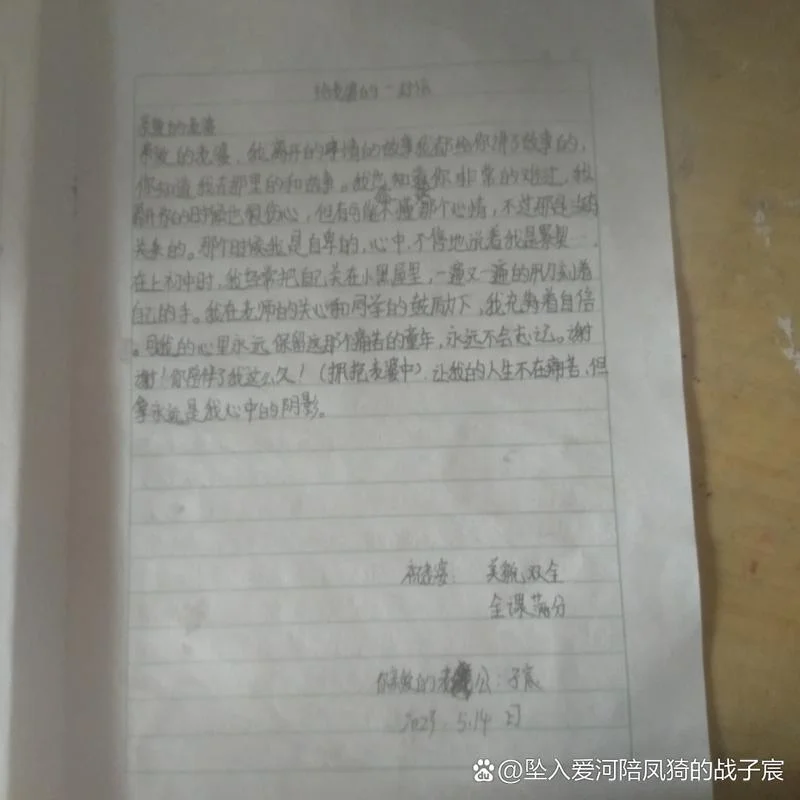 给老婆的一封信
亲爱的老婆
亲爱的老婆,我离开的事情的故事我都给你讲了故事的,
你知道我在那里的和故事。我也知道你非常的难过,我
离开你的时候也很伤心,但有可能不懂那个心情,不过那是
关系的。那个时候我是自卑的,心中不停地说着我是
在上初中时,我经常把自己关在小黑屋里,一遍又一遍的用刀刻着
自己的手。我在老师的关心和同学的鼓励下,我充满着自信
。我的心里永远保留这那个痛苦的童年,永远不会忘记。谢
谢!你陪伴了我这么久!(拥抱老婆中)让我的人生不在痛苦,但
永远是我心中的阴影。
祝老婆: 美貌双全
全课满分
你亲爱的老公:子宸
2023.5.14
@坠入爱河陪凤猗的战子宸